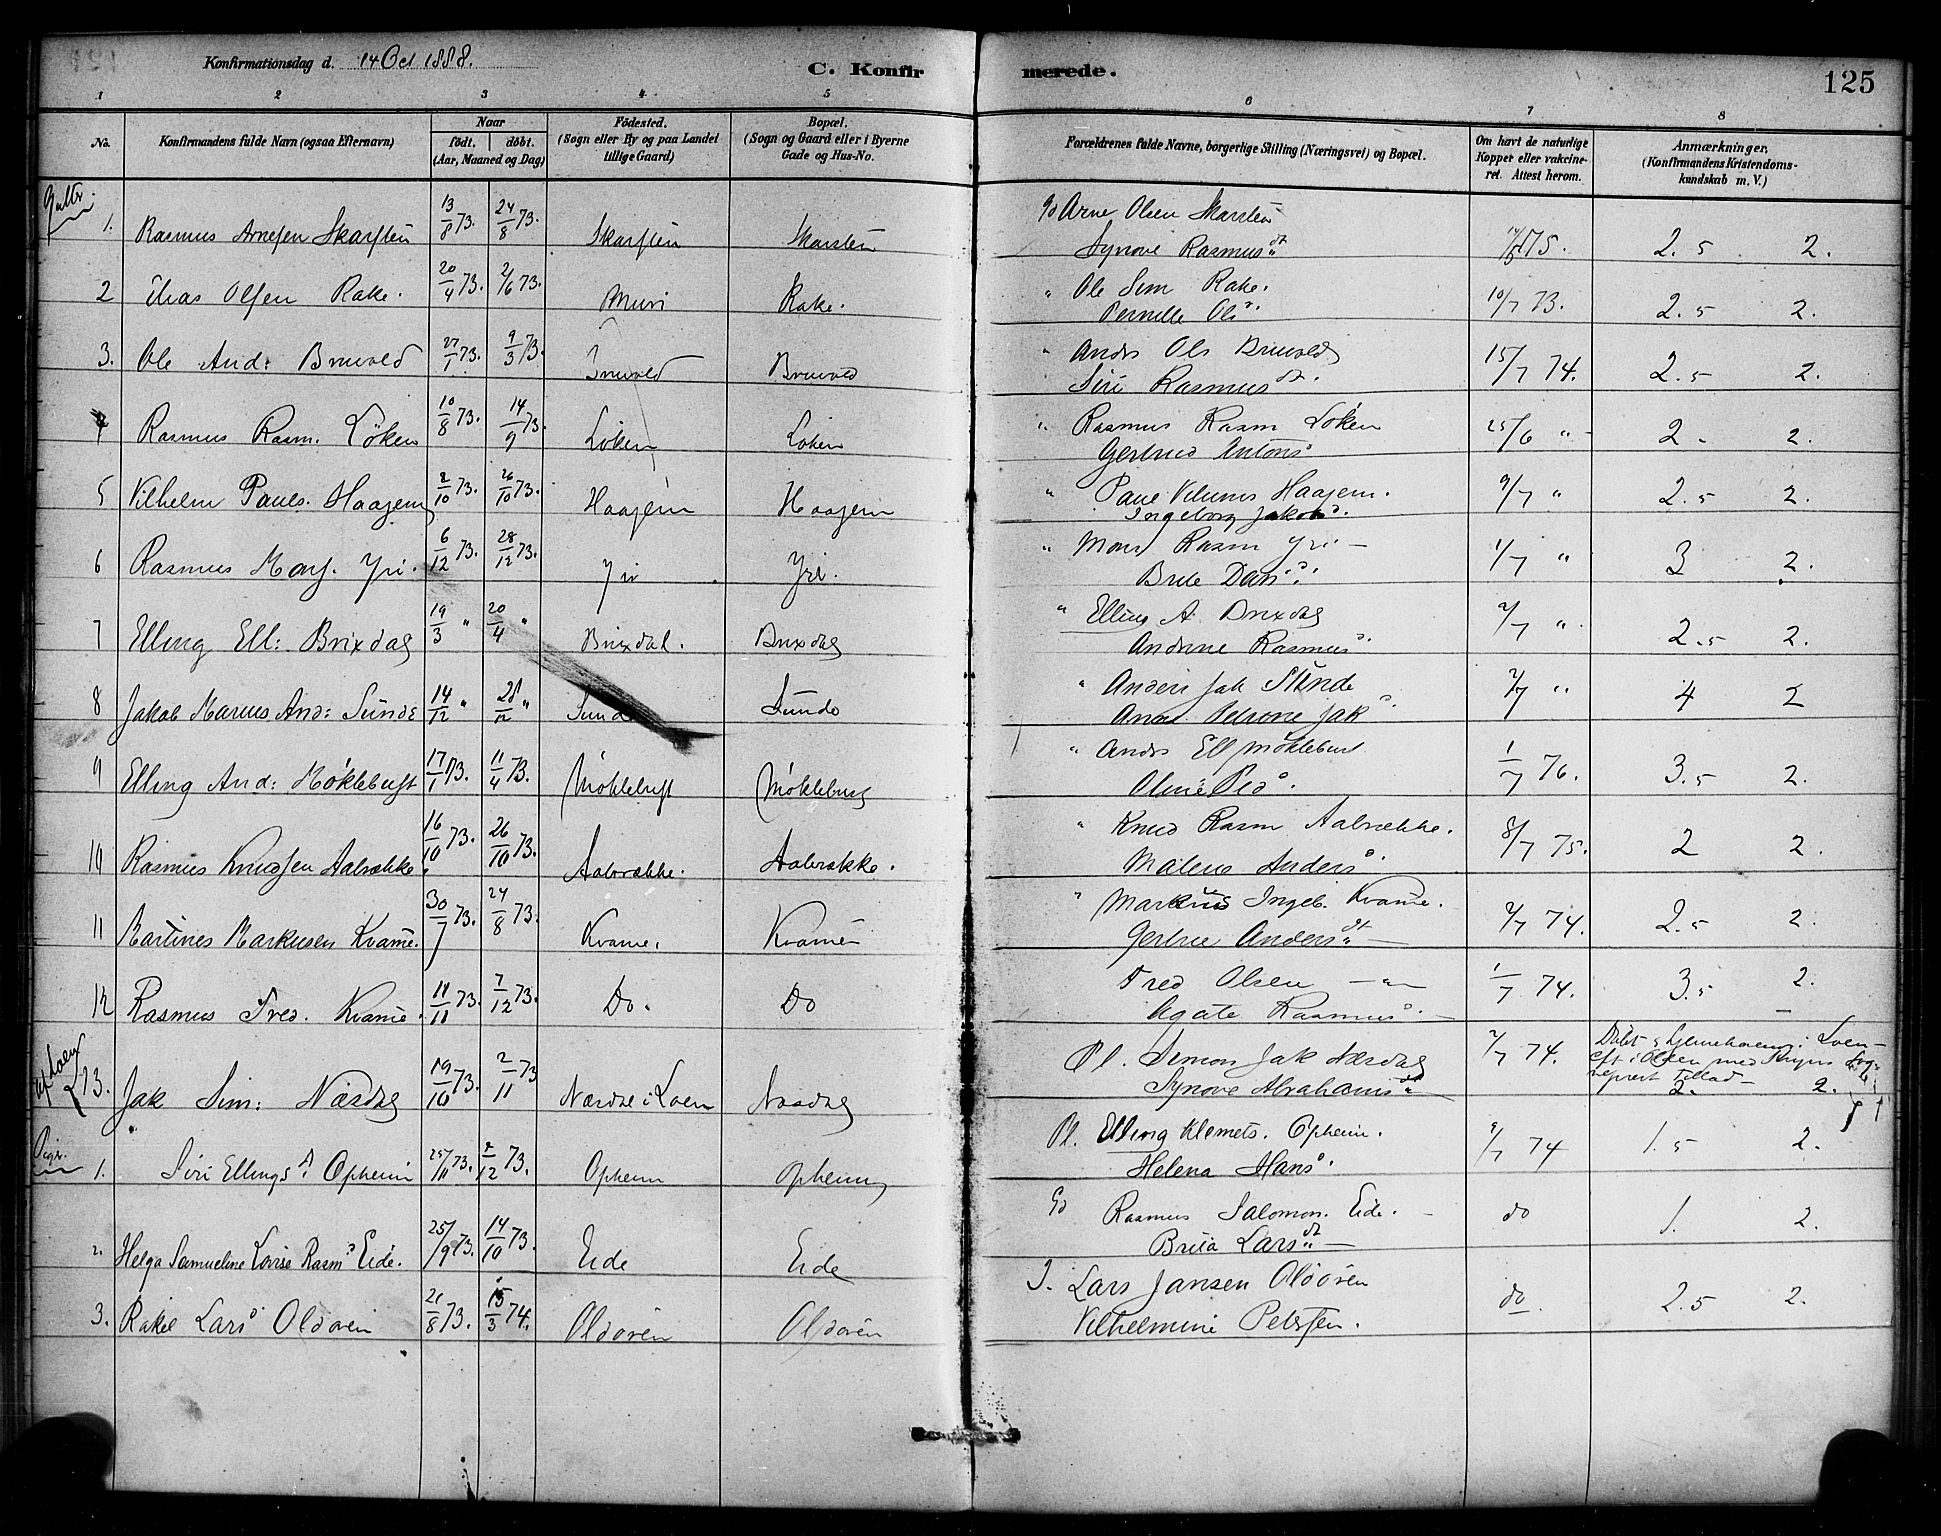 Konfirmationsdag d. 14 Oct 1888.
C. Konfirmerede.
125
1 2 3 4 5 6 7 8
No.
Konfirmandens fulde Navn (ogsaa Efternavn)
Naar
födt. döbt.
(Aar, Maaned og Dag)
Födested.
(Sogn eller By og paa Landet
tillige Gaard)
Bopæl.
(Sogn og Gaard eller i Byerne
Gade og Hus-No.
Forældrenes fulde Navne, borgerlige Stilling (Næringsvei) og Bopæl.
Om havt de naturlige
Kopper eller vakcine-
ret. Attest herom.
Anmærkninger.
(Konfirmandens Kristendoms-
kundskab m. V.)
Gutter.
1. Rasmus Arnesen Skarsten 13/8 73. 24/8 73. Skarsten Skarsten Gd Arne Olsen Skarsten 75. 2.5 2.
Synove Rasmusdt
2 Elias Olsen Rake. 20/4 73. 2/6 73. Muri Rake. " Ole Sim Rake. 10/7 73. 2.5 2.
Pernille Olsd
3. Ole And: Bruvold 27/1 73. 9/3 73. Bruvold Bruvold " Anders Ols Bruvold 15/7 74. 2.5 2.
Siri Rasmusdt.
4 Rasmus Rasm. Löken 10/8 73. 14/9 73. Löken Löken " Rasmus Rasm Löken 25/6 " 2 - 2.
Gertrud Antonsd
5 Vilhelm Pauls. Haagem 2/10 73. 26/10 73. Haajem Haajem " Paul Haajem. 9/7 " 2.5 2.
Ingeborg Jakobsd.
6 Rasmus Mons. Yri. 6/12 73. 28/12 73. Yri Yri. " Mons Rasm Yri - 1/7 " 3 2.
Brite Dansd.
7 Elling Ell: Brixdag 19/3 " 20/4 " Brixdal. Brixdag " Elling A. Brixdag 2/7 " 2.5 2.
Andrine Rasmusd.
8 Jakob Marius And: Sunde 14/12 " 28/12 " Sunde Sunde " Anders Jak Sunde 2/7 " 4 2
Anne Petrone Jakd
9 Elling And: Möklebust 17/1 73. 11/4 73. Möklebust Möklebust " Andrs Ell Möklebust 1/7 76. 3.5 2.
Oline Pedd.
10 Rasmus Knudsen Aabrække 16/10 73. 26/10 73. Aabrække. Aabrække. " Knud Rasm Aabrække. 8/7 75. 2 2.
Malene Andersd.
11 Martines Markusen Kvame. 30/7 73. 24/8 73. Kvame. Kvame " Markus Ingeb. Kvame. 2/7 74. 2.5 2.
Gertrue Andersdt -
12 Rasmus Fred. Kvame. 11/11 73. 7/12 73. Do. Do Fred Olsen - " - 1/7 74. 3.5 2.
Agate Rasmusd. -
af Loen
13. Jak Sim: Næsdag 19/10 73. 2/11 73 Næsdal i Loen Næsdag Pl. Simon Jak Næsdag 2/7 74. Döbt i Loen -
Synove Abrahamsdt 2. 2.
Piger.
1. Siri Ellingsd. Opheim 25/11 73. 2/12 73. Opheim Opheim Pl. Elling Klemets. Opheim. 9/7 74 1.5 2.
Helena Hansd.
2. Helga Samueline Lovise Rasmd Eide. 25/9 73. 14/10 73. Eide Eide Gd Rasmus Salomon. Eide. - do 1. 2.
Brita Larsdt -
3. Rakel Larsd Oldören 21/8 73. 15/3 74. Oldören Oldören I. Lars Jansen Oldören do. 2.5 2.
Vilhelmine Petersen.